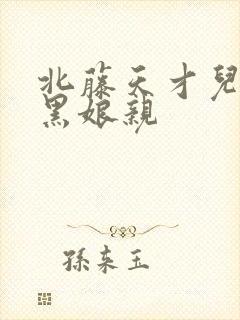 北藤天才兒
黑娘親
孫來玉